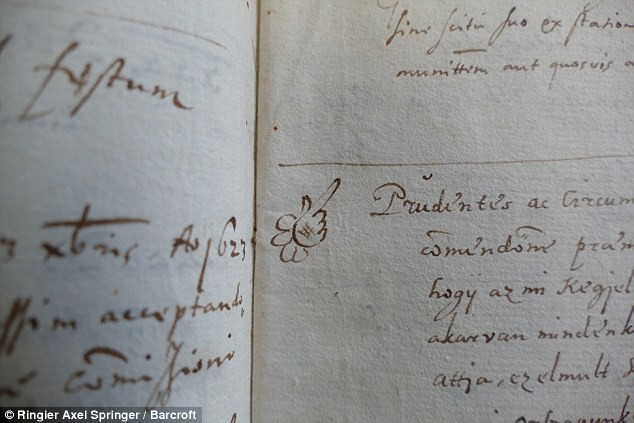 fęstum
xbris, Ao 1623
ssim acceptando
com̄issioni
sine scitu suo ex station
aut quosvis a
Prudentes ac Circum
com̄endom̄e
hogÿ az mi Kegjel
akarvan mindenk
attja, ez elmult
© Ringier Axel Springer / Barcroft